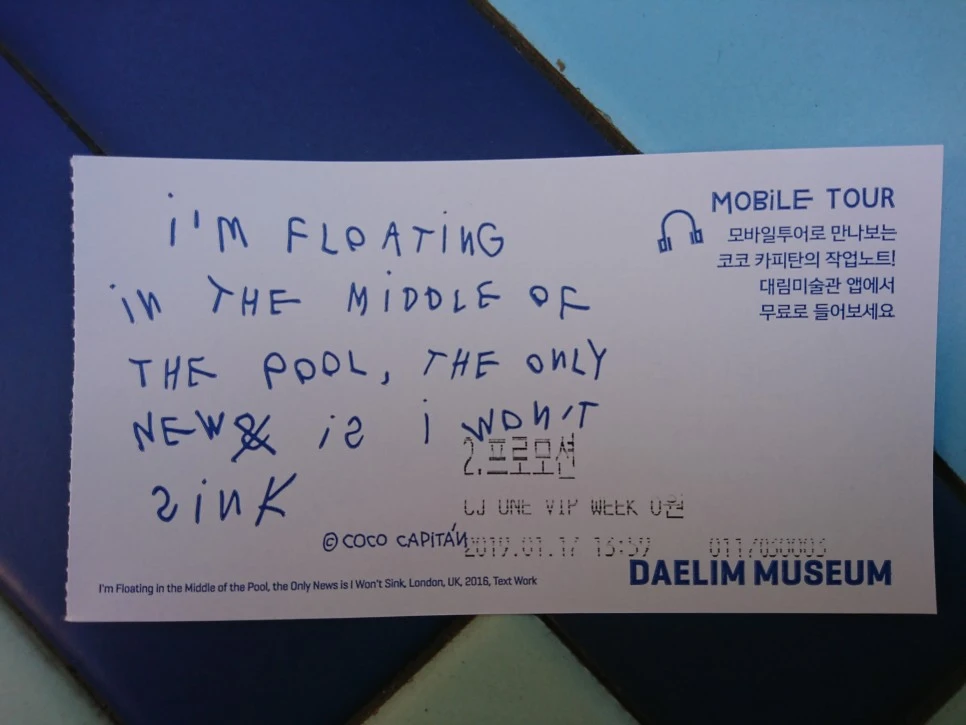 i'M FLOATiNG
iN THE MiDDLE OF
THE POOL, THE ONLY
NEWS iS i WON'T
SiNK
© COCO CAPITÁN
I'm Floating in the Middle of the Pool, the Only News is I Won't Sink, London, UK, 2016, Text Work
MOBiLE TOUR
모바일투어로 만나보는
코코 카피탄의 작업노트!
대림미술관 앱에서
무료로 들어보세요
2.프로모션
CJ ONE VIP WEEK 0원
2019.01.17
DAELIM MUSEUM